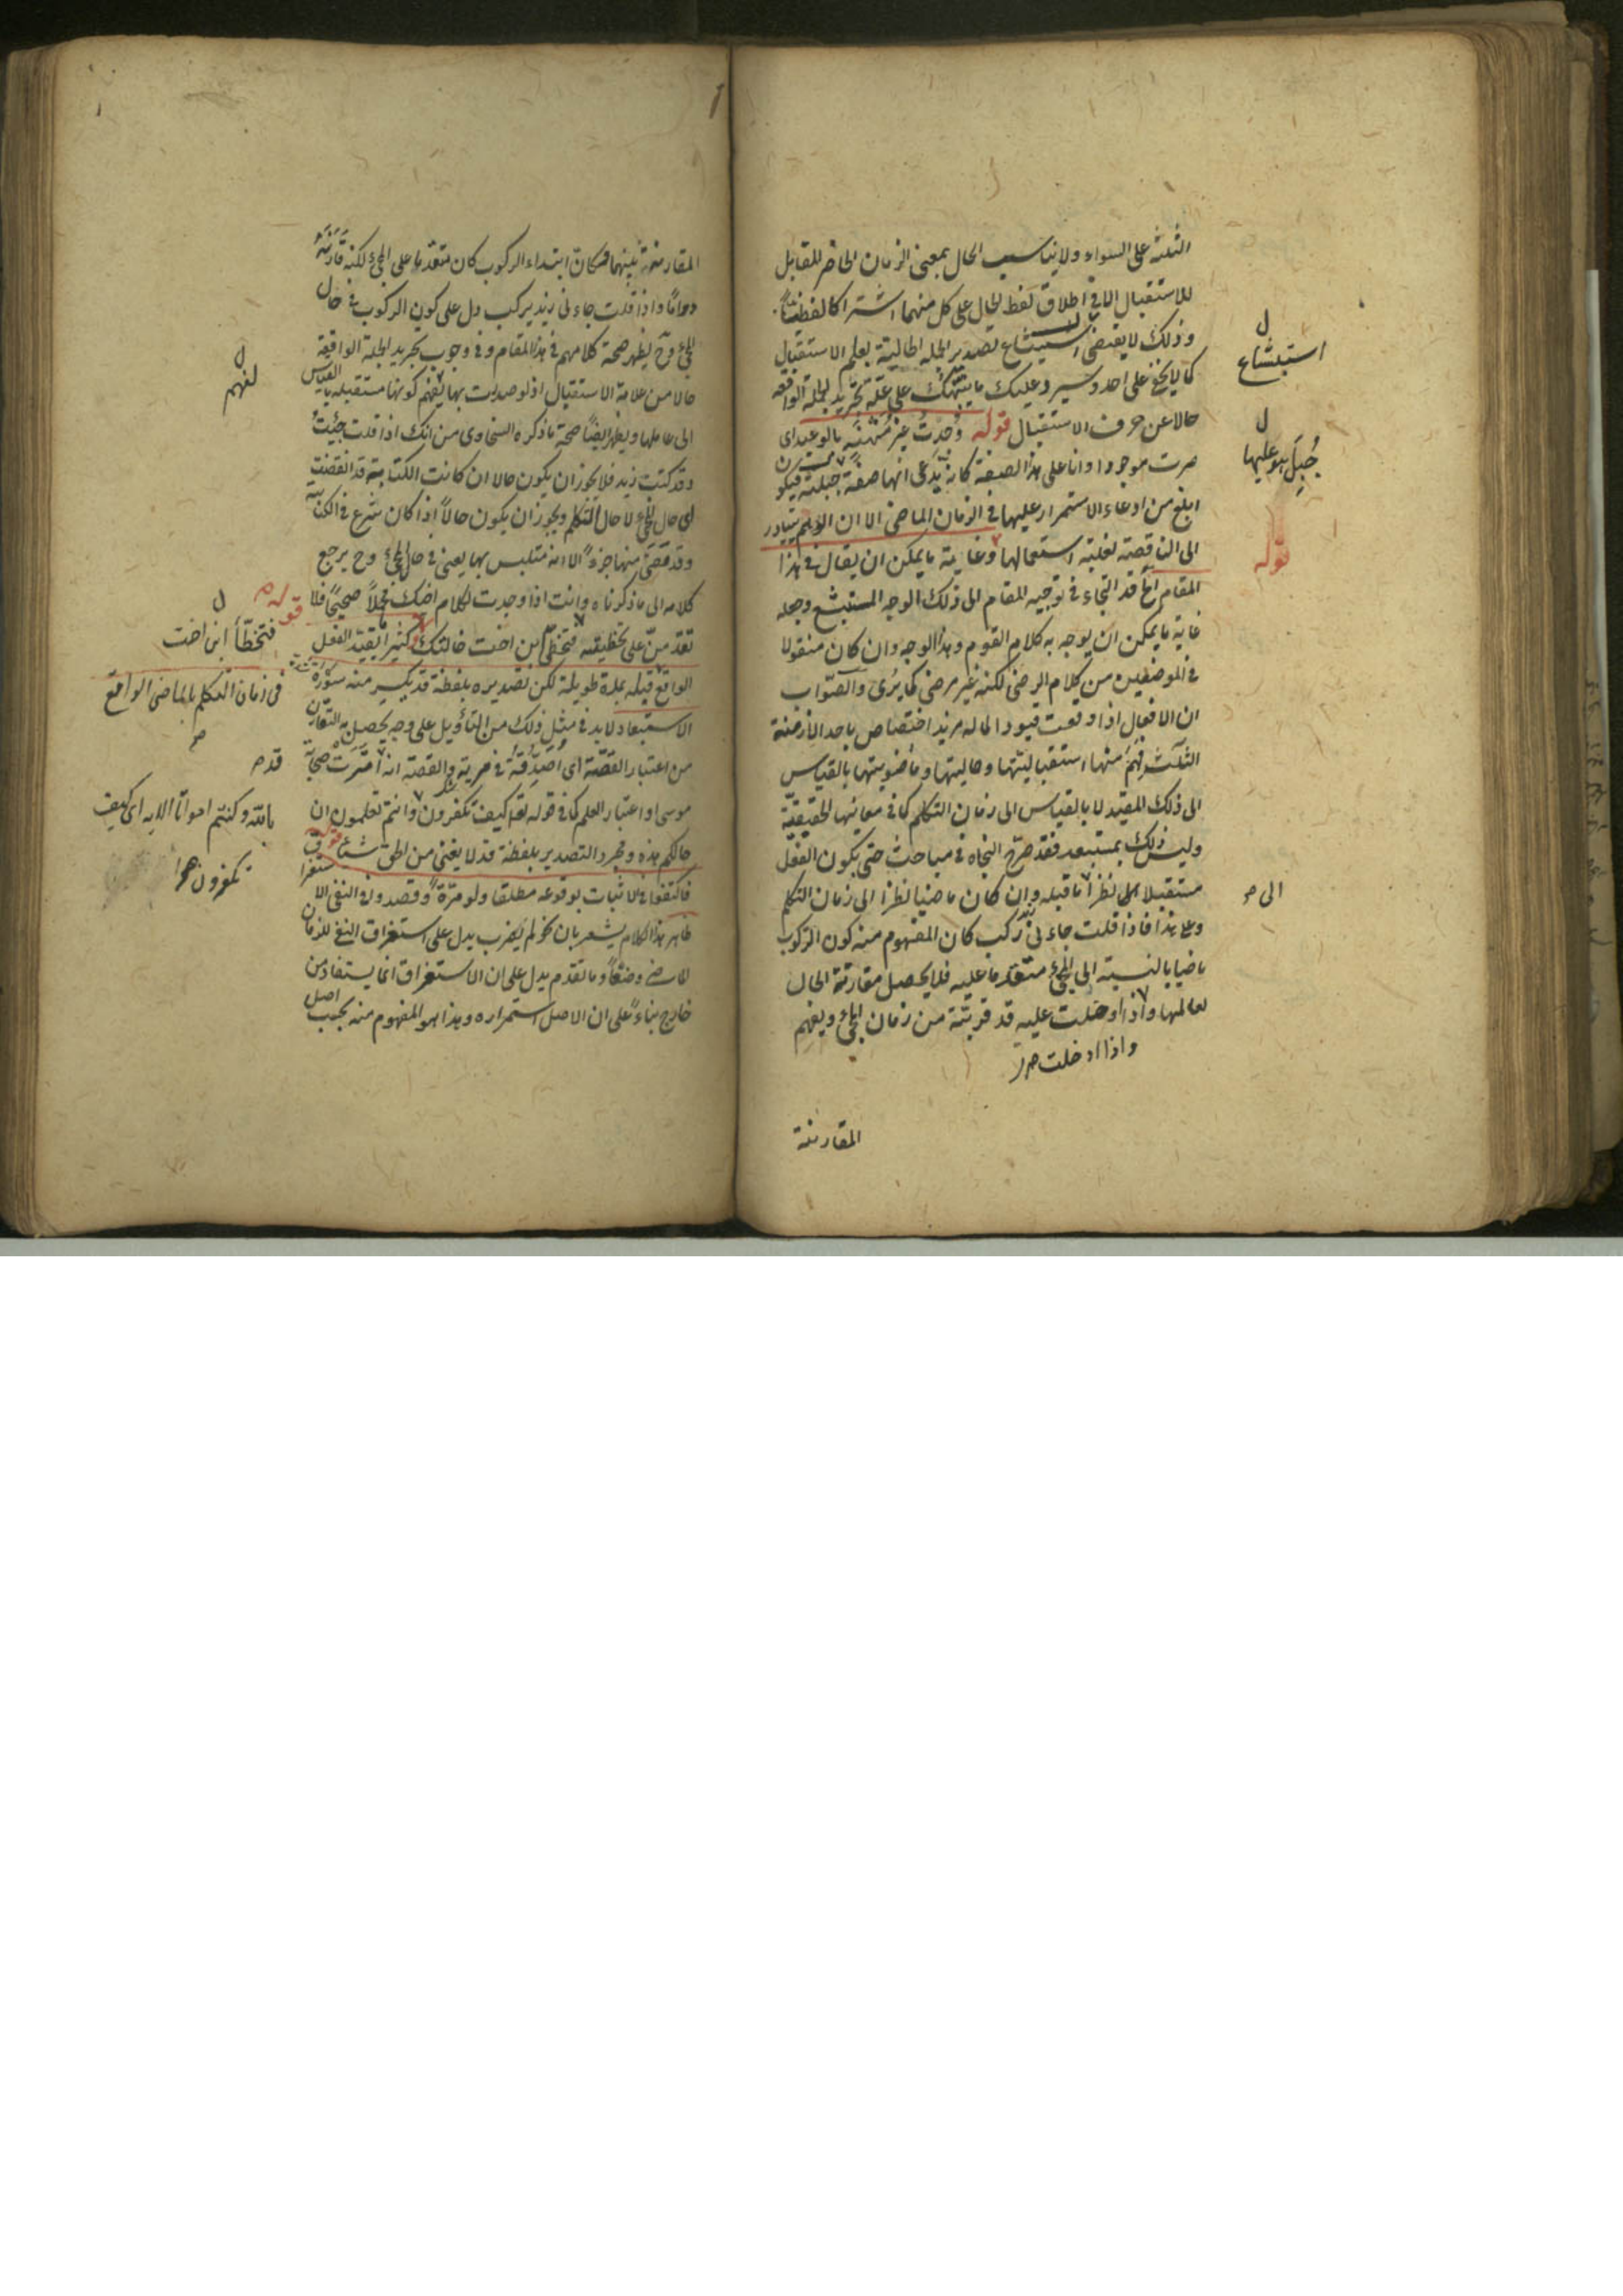 الثلثة على السواء ولا يناسب الحال بمعنى الزمان الحاضر المقابل
للاستقبال الا فى اطلاق لفظ الحال على كل منهما اشتراكا لفظيّاً
وذلك لا يقتضى استبشاع تصدير الجملة الحالية بعلم الاستقبال
كما لا يخفى على احد وسيرد عليك ما ينبّهك على علّة تجريد الجملة الواقعة
حالا عن حرف الاستقبال قوله وُجدتُ غير مُنْثَنٍ بالوعيد اى
صرت موجودا وانا على هذا الصفة كانه يدّعى انها صفة جبلية فيكون
ابلغ من ادعاء الاستمرار عليها فى الزمان الماضى الا ان الوهم يتبادر
الى الناقصة لغلبة استعمالها وغاية ما يمكن ان يقال فى هذا
المقام اه قد التجاء فى توجيه المقام الى ذلك الوجه المستبشع وجعله
غاية ما يمكن ان يوجه به كلام القوم وهذا الوجه وان كان منقولا
فى الموضعين من كلام الرضى لكنه غير مرضى كما يُرى والصّواب
ان الافعال اذا وقعت قيودا لما له مزيد اختصاص باحد الازمنة
الثلث فُهم منها استقباليتها وحاليتها وماضويتها بالقياس
الى ذلك المقيد لا بالقياس الى زمان التكلم كما فى معانيها الحقيقيّة
وليس ذلك بمستبعد فقد صرّح النحاة فى مباحث حتى بكون الفعل
مستقبلا نظراً الى ما قبله وان كان ماضيا نظرا الى زمان التكلم
وعلى هذا فاذا قلت جاءنى زيد ركب كان المفهوم منه كون الركوب
ماضيا بالنسبة الى المجئ متقدما عليه فلا يحصل مقارنة الحال
لعاملها واذا ادخلت عليه قد قربته من زمان المجئ ويفهم
واذا ادخلت
المقارنة
استبشاع
جُبِلَ هو عليها
قوله
الى
المقارنة بينهما فكان ابتداء الركوب كان متقدما على المجئ لكنه قارنَهُ
دواماً واذا قلت جاءنى زيد يركب دل على كون الركوب فى حال
المجئ وح يظهر صحة كلامهم فى هذا المقام وفى وجوب تجريد الجملة الواقعة
حالا من علامة الاستقبال اذ لو صدرت بها لفهم كونها مستقبلة بالقياس
الى عاملها ويظهر ايضاً صحة ما ذكره السخاوى من انك اذا قلت جئتُ
وقد كتب زيد فلا يجوز ان يكون حالا ان كانت الكتابة قد انقضت
اى حال المجئ لا حال التكلم ويجوز ان يكون حالاً اذا كان شرع فى الكتابة
وقد مضى منها جزءٌ الا انه متلبس بها يعنى فى حال المجئ وح يرجع
كلامه الى ما ذكرناه وانت اذا وجدت لكلام اخيك محملاً صحيحاً فلا
تقدمنّ على تخطيئته فتخطّئ ابن اخت خالتك قوله كثيرا يقيّد الفعل
الواقع قبله بمدة طويلة لكن تصديره بلفظة قد يكسر منه سَوْرَة
الاستبعاد لا بد فى مثل ذلك من التأويل على وجه يحصل به التقارن
من اعتبار القصّة اى أصدّقه فى مرية والقصة انه امترت صحابة
موسى او اعتبار العلم كما فى قوله تعا كيف تكفرون وانتم تعلمون ان
حالكم هذه ومجرد التصدير بلفظة قد لا يغنى من الحق شيئا قوله
فاكتفوا فى الاثبات بوقوعه مطلقا ولو مرّة وقصدوا فى النفى الاستغراق
ظاهر هذا الكلام يشعر بان نحو لم يضرب يدل على استغراق النفى للزمان
الماضى وضعاً وما تقدم يدل على ان الاستغراق انما يستفاد من
خارج بناءً على ان الاصل استمراره وهذا هو المفهوم منه بحسب اصل
لفهم
قوله
فتخطّأ ابن اخت
فى زمان التكلم بالماضى الواقع
قد
بالله وكنتم امواتا الايه اى كيف
تكفرون